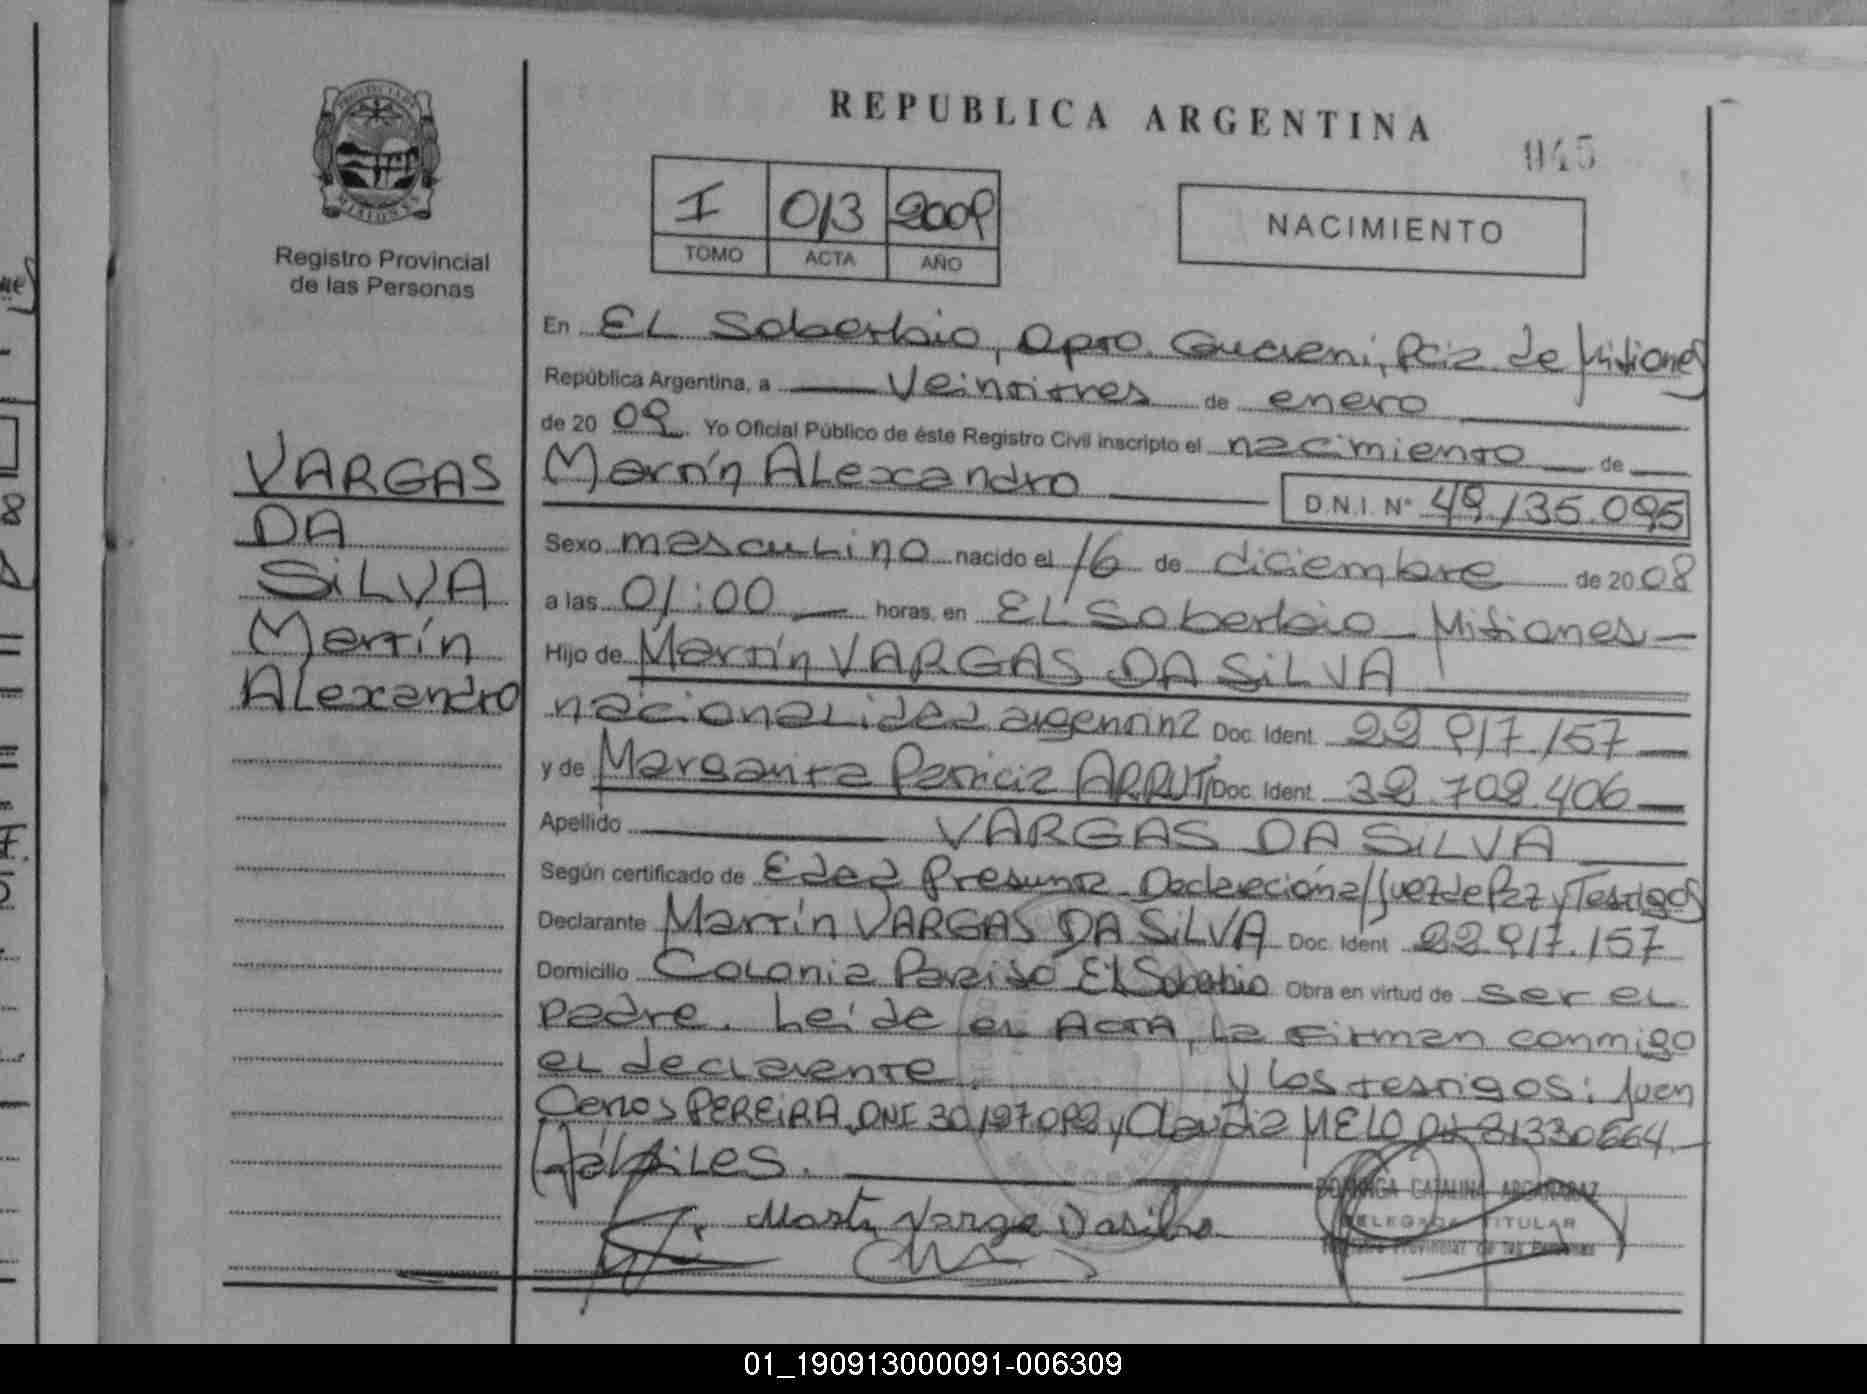 REPUBLICA ARGENTINA
045
I 013 2009
TOMO ACTA AÑO
NACIMIENTO
Registro Provincial
de las Personas
En EL Soberbio, Dpto. Guarani, Pcia. de Misiones
República Argentina, a veintitres de enero
de 20 09. Yo Oficial Público de éste Registro Civil inscripto el nacimiento de
Martín ALexandro D.N.I. Nº 49.135.095
VARGAS
DA
SiLVA
Martín
ALexandro
Sexo mascuLino nacido el 16 de diciembre de 20 08
a las 01:00 horas, en EL Soberbio - Misiones
Hijo de Martín VARGAS DA SiLVA
nacionaLidad argentina Doc. Ident. 22 917.157
y de Margarita Patricia Doc. Ident. 38.708.406
Apellido VARGAS DA SiLVA
Según certificado de Edad Presunta Declaración a/ Juez de Paz y Testigos
Declarante Martín VARGAS DA SiLVA Doc. Ident 22 917.157
Domicilio CoLonia Paraiso EL Soberbio Obra en virtud de ser eL
padre. Leída eL ActA, La firman conmigo
eL decLarante. y Los testigos: Juan
Carlos PEREiRA DNI y CLaudia MELO 31330664
hábiLes.
Martin Vargas Dasilva
CATALINA ARGAÑARAZ
DELEGADA TITULAR
Registro Provincial de las Personas
01_190913000091-006309